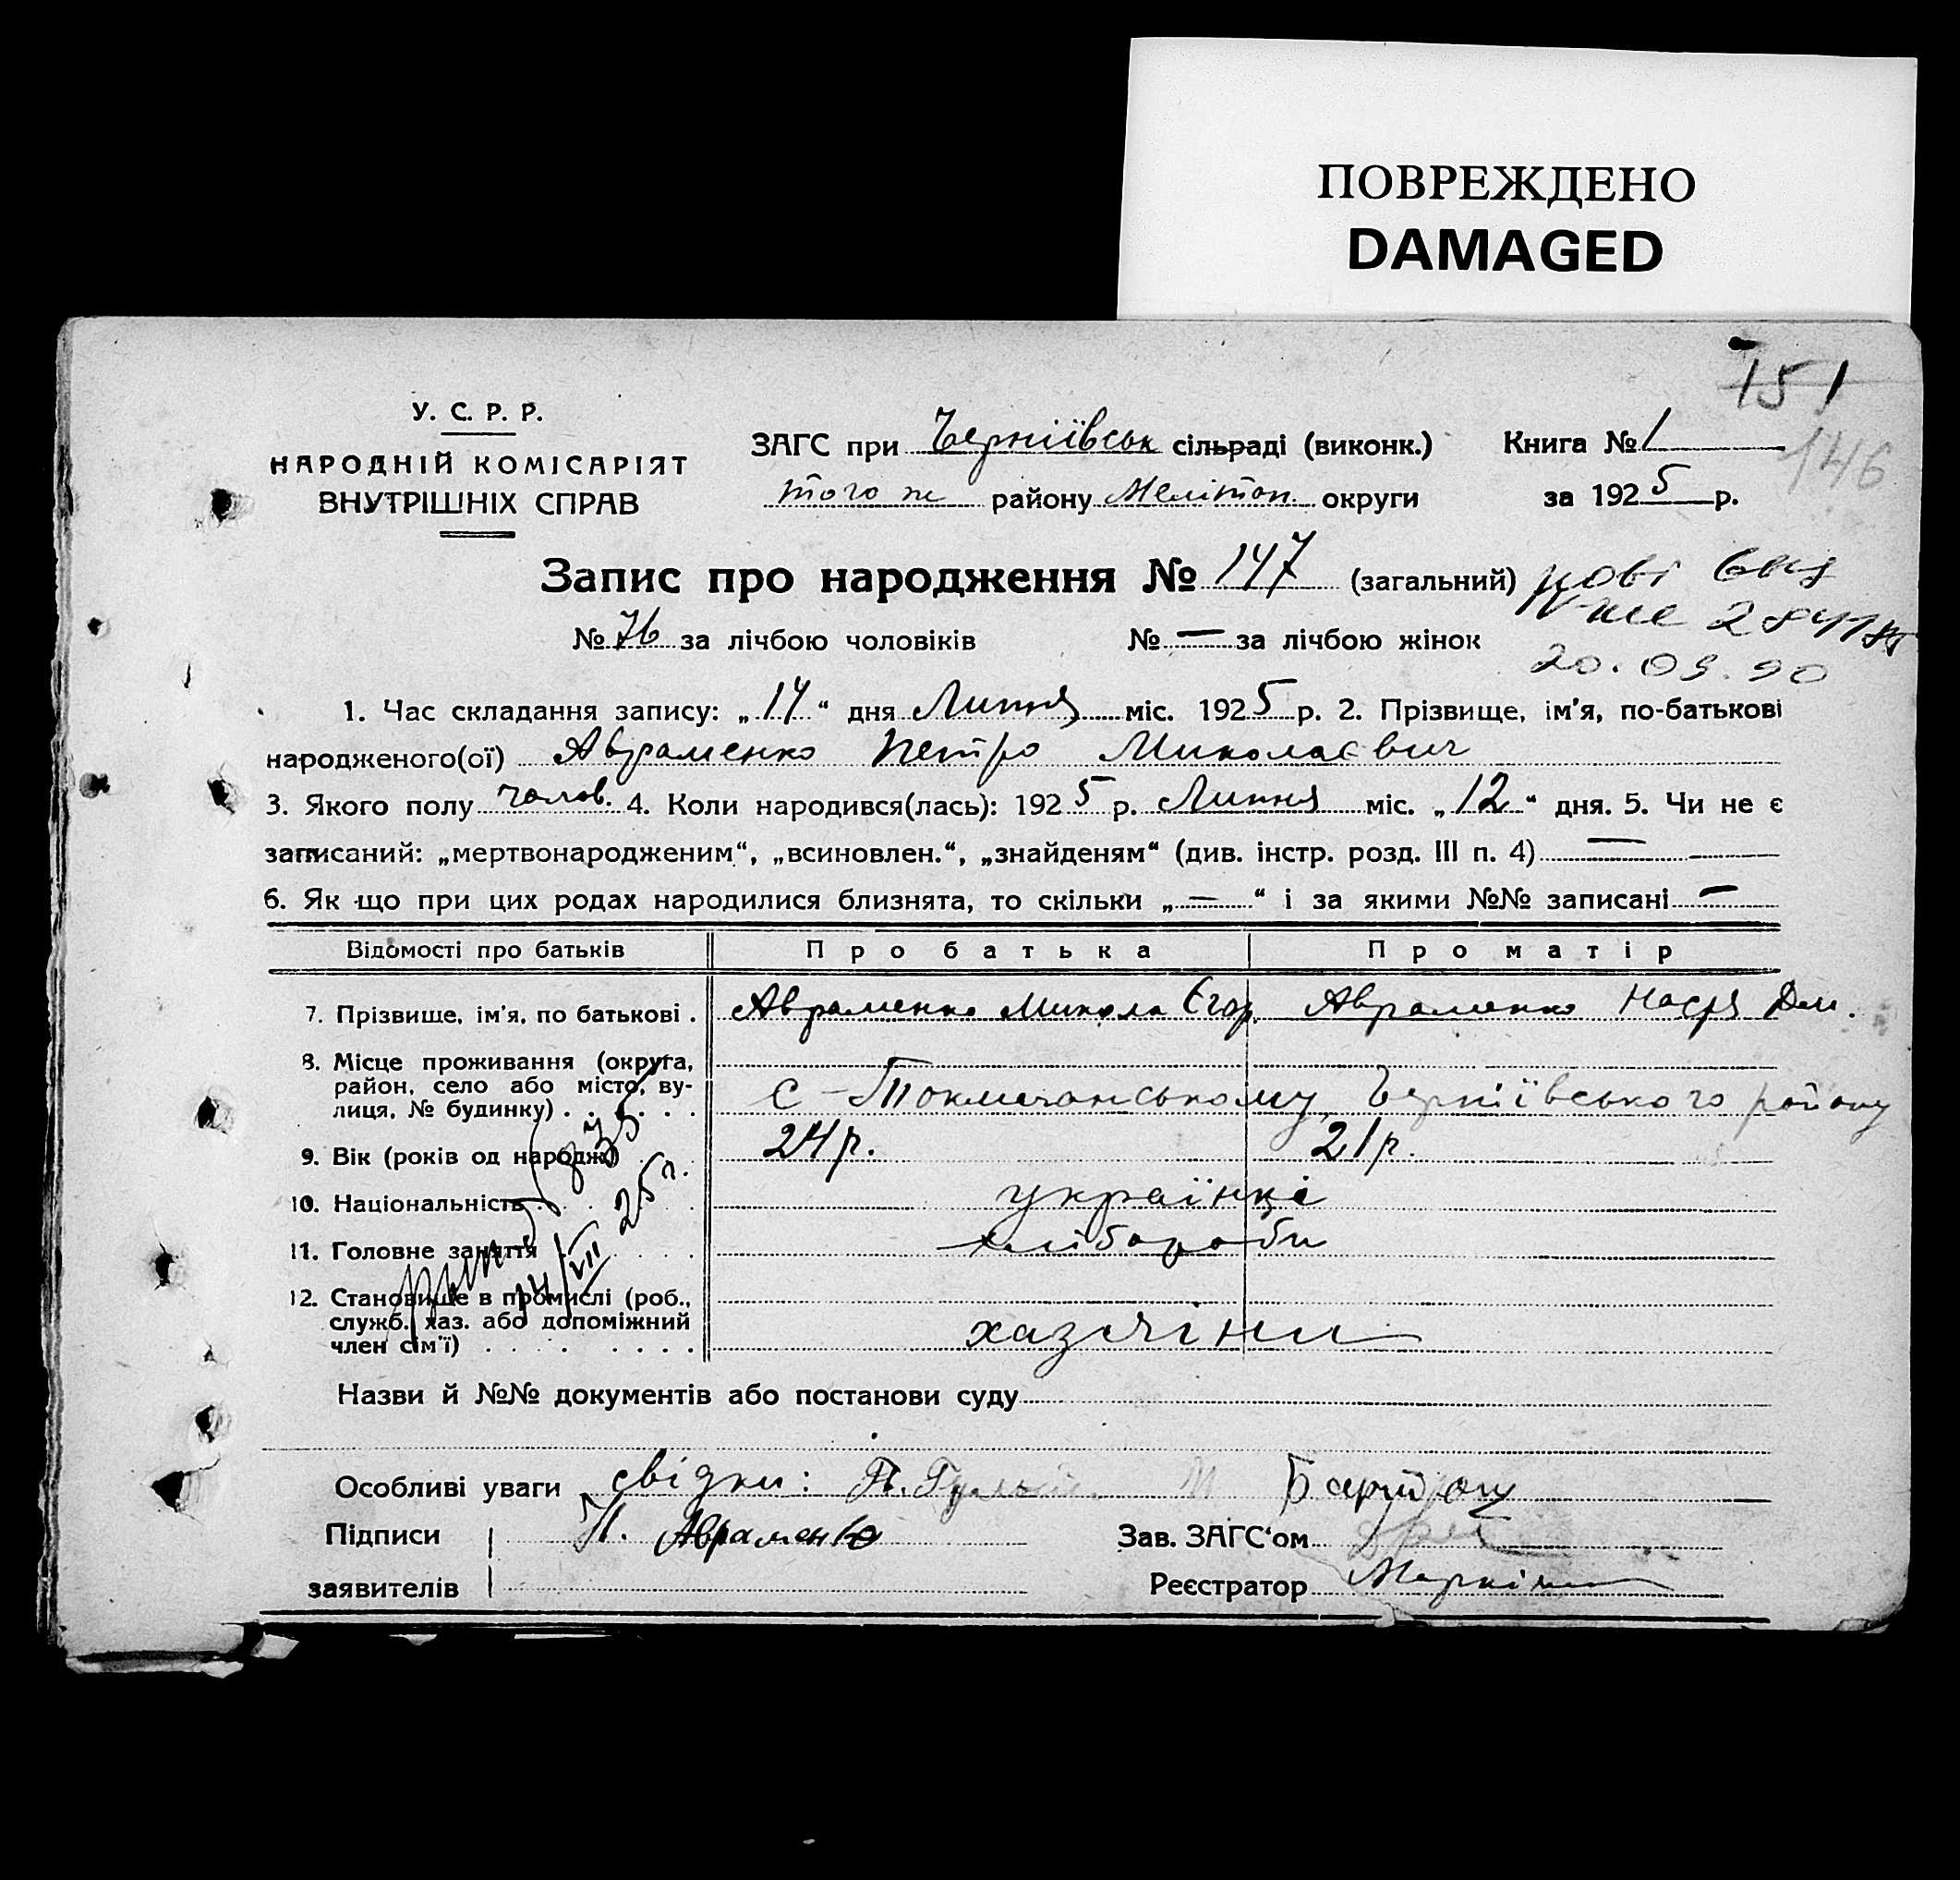 ПОВРЕЖДЕНО
DAMAGED
751
146
У. С. Р. Р.
НАРОДНІЙ КОМІСАРІЯТ
ВНУТРІШНІХ СПРАВ
ЗАГС при Черніївськ сільраді (виконк.) Книга № 1
того ж району Мелітоп. округи за 1925 р.
Запис про народження № 147 (загальний)
№ 76 за лічбою чоловіків № — за лічбою жінок
20.09.90
1. Час складання запису: „14“ дня Липня міс. 1925 р. 2. Прізвище, ім'я, по-батькові
народженого(ої) Авраменко Петро Миколаєвич
3. Якого полу чолов. 4. Коли народився(лась): 1925 р. Липня міс. „12“ дня. 5. Чи не є
записаний: „мертвонародженим“, „всиновлен.“, „знайденям“ (див. інстр. розд. III п. 4) —
6. Як що при цих родах народилися близнята, то скільки „—“ і за якими №№ записані —
Відомості про батьків Про батька Про матір
7. Прізвище, ім'я, по батькові . Авраменко Микола Єгор. Авраменко Настя Дем.
8. Місце проживання (округа,
район, село або місто, ву-
лиця, № будинку) . . . . . с-Токмачанському Черніївського району
9. Вік (років од народж.) 24 р. 21 р.
10. Національність українці
11. Головне заняття хлібороби
12. Становище в промислі (роб.,
служб. хаз. або допоміжний
член сім'ї) . . . . . . . . хазяіни
14/VII 25 р.
Назви й №№ документів або постанови суду
Особливі уваги свідки:
Підписи Н. Авраменко Зав. ЗАГС'ом
заявителів Реєстратор